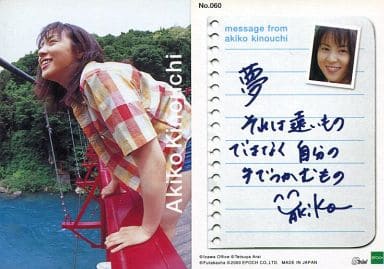 Akiko Kinouchi
No.060
message from
akiko kinouchi
夢
それは遠いもの
ではなく 自分の
手でつかむもの
Akiko
©Izawa Office ©Tetsuya Arai
©Futabasha ©2000 EPOCH CO.,LTD. MADE IN JAPAN
EPOCH